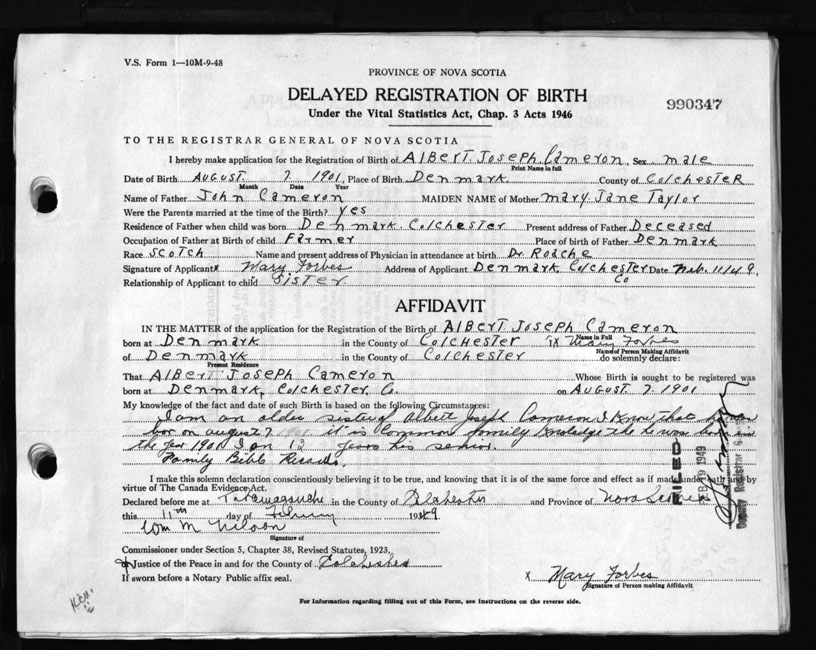 V.S. Form 1—10M-9-48
PROVINCE OF NOVA SCOTIA
DELAYED REGISTRATION OF BIRTH
990347
Under the Vital Statistics Act, Chap. 3 Acts 1946
TO THE REGISTRAR GENERAL OF NOVA SCOTIA
I hereby make application for the Registration of Birth of Albert Joseph Cameron, Sex male
Print Name in full
Date of Birth August 7 1901, Place of Birth Denmark County of Colchester
Month Date Year
Name of Father John Cameron MAIDEN NAME of Mother Mary Jane Taylor
Were the Parents married at the time of the Birth? yes
Residence of Father when child was born Denmark, Colchester Present address of Father Deceased
Occupation of Father at Birth of child Farmer Place of birth of Father Denmark
Race Scotch Name and present address of Physician in attendance at birth Dr. Roache
Signature of Applicant x Mary Forbes Address of Applicant Denmark, Colchester Co Date Feb. 11/49.
Relationship of Applicant to child Sister
AFFIDAVIT
IN THE MATTER of the application for the Registration of the Birth of Albert Joseph Cameron
Name in Full
born at Denmark in the County of Colchester x Mary Forbes
Name of Person Making Affidavit
of Denmark in the County of Colchester do solemnly declare:
Present Residence
That Albert Joseph Cameron Whose Birth is sought to be registered was
born at Denmark, Colchester, Co. on August 7. 1901
My knowledge of the fact and date of such Birth is based on the following Circumstances:
I am an older sister of Albert Joseph Cameron I know that he was
on august 7 1901 it is common family knowledge he was born in
the year 1901 I am 12 years his senior.
Family Bible Records.
I make this solemn declaration conscientiously believing it to be true, and knowing that it is of the same force and effect as if made under oath and by
virtue of The Canada Evidence Act.
Declared before me at Tatamagouche in the County of Colchester and Province of Nova Scotia
this 11th day of February 1949
Wm M Nelson
Signature of
Commissioner under Section 5, Chapter 38, Revised Statutes, 1923,
Justice of the Peace in and for the County of Colchester
If sworn before a Notary Public affix seal.
x Mary Forbes
Signature of Person making Affidavit
For Information regarding filling out of this Form, see Instructions on the reverse side.
FILED
1949
Deputy Registrar